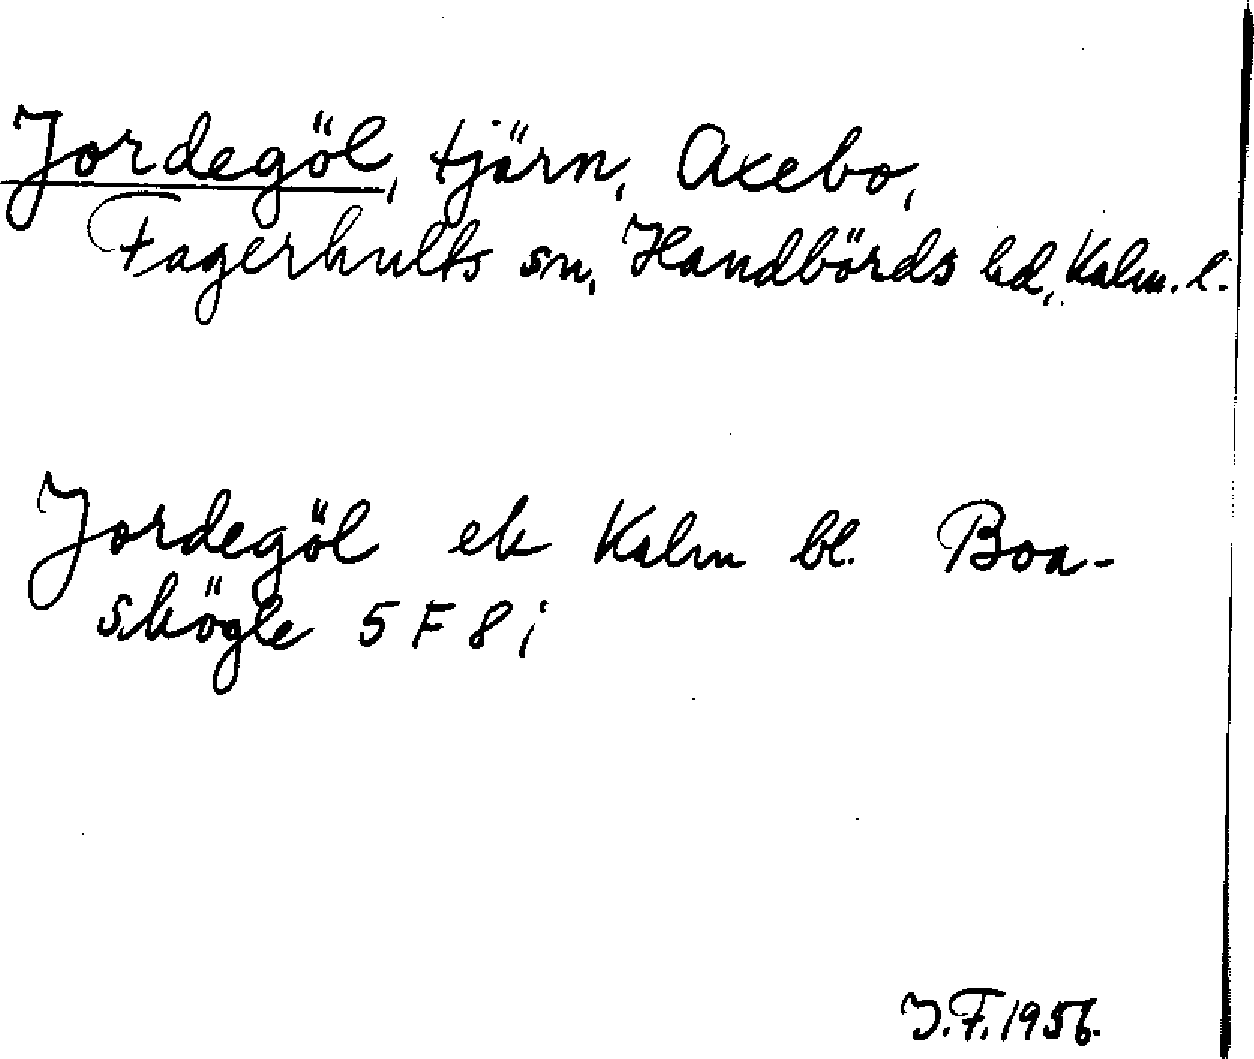 Jordegöl, tjärn, Axebo,
Fagerhults sn, Handbörds hd, Kalm. l.
Jordegöl ek Kalm bl. Boa-
skögle 5 F 8 i
J.F. 1956.